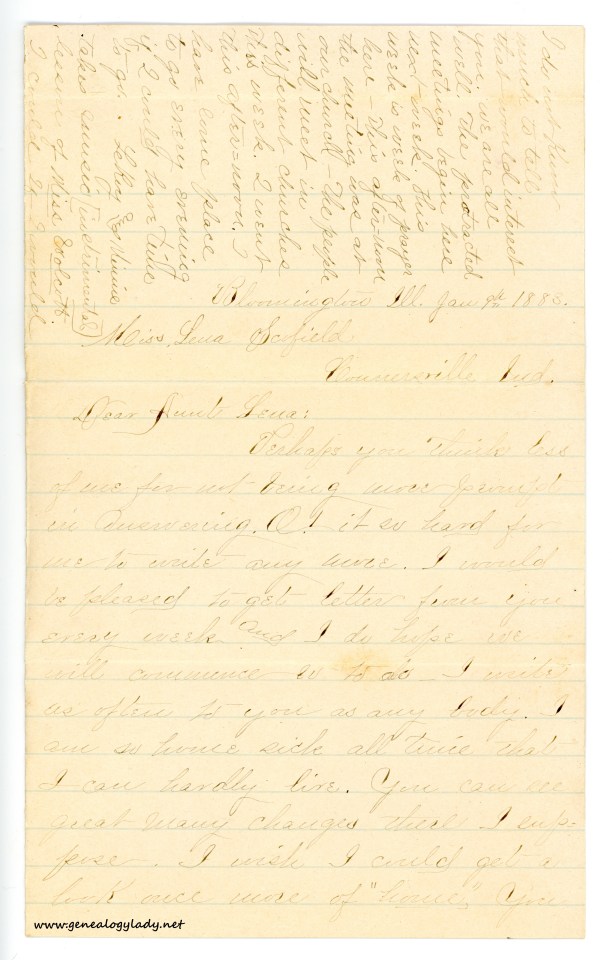 I do not know
much to tell
that would interest
you. we are all
well. The protracted
meetings begin here
next week this
week is week of prayer
here - This afternoon
the meeting was at
our church - The people
will meet in
different churches
this week. I went
this after=noon.
have some place
to go every evening
if I could have time
to go. LeRoy & Minnie
takes music (instrumental)
lessons of Miss
I could if I would
Bloomington Ill. Jan 9th 1883.
Miss, Lena Scofield
Connersville Ind.
Dear Aunt Lena:
Perhaps you think less
of me for not being more prompt
in answering. O! it so hard for
me to write any more. I would
be pleased to get letter from you
every week and I do hope we
will commence so to do - I write
as often to you as any body. I
am so home sick all time that
I can hardly live. You can see
great many changes there I sup=
pose. I wish I could get a
look once more of "home." You
www.genealogylady.net